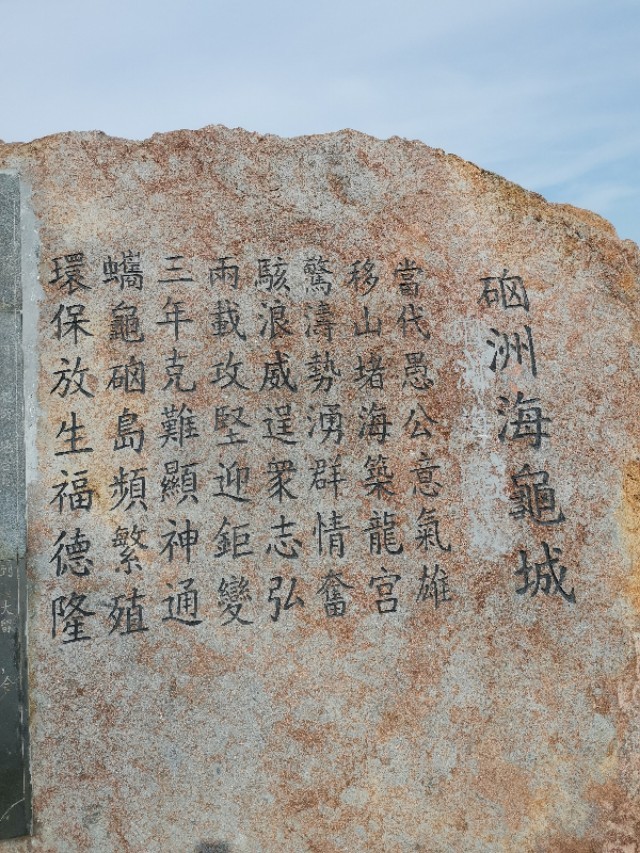 硇洲海龜城
當代愚公意氣雄
移山堵海築龍宮
驚濤勢湧群情奮
駭浪威逞衆志弘
兩載攻堅迎鉅變
三年克難顯神通
蠵龜硇島頻繁殖
環保放生福德隆